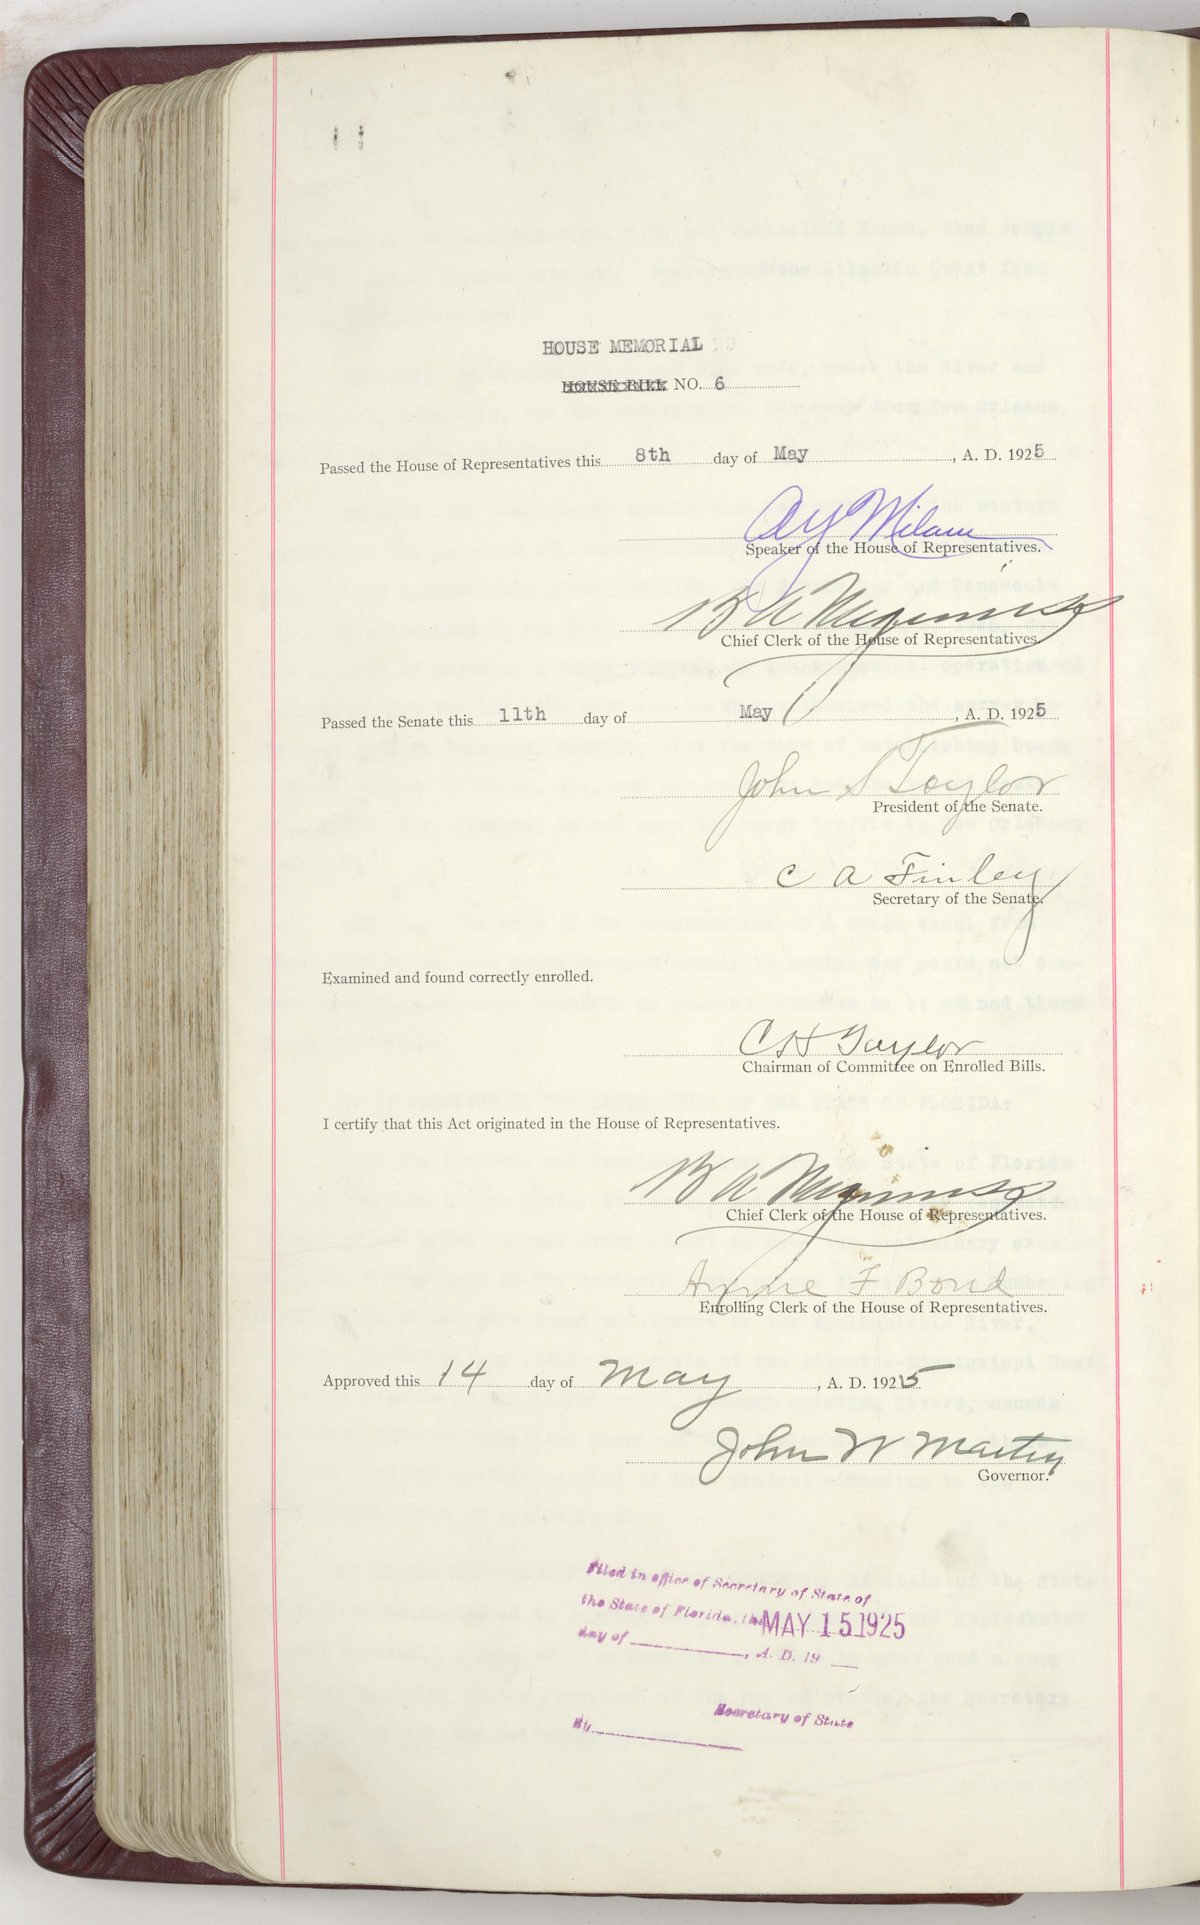 HOUSE MEMORIAL
HOUSE BILL NO. 6
Passed the House of Representatives this 8th day of May, A. D. 1925
A Y Milam
Speaker of the House of Representatives.
B A Meginniss
Chief Clerk of the House of Representatives.
Passed the Senate this 11th day of May, A. D. 1925
John S Taylor
President of the Senate.
C A Finley
Secretary of the Senate.
Examined and found correctly enrolled.
C H Taylor
Chairman of Committee on Enrolled Bills.
I certify that this Act originated in the House of Representatives.
B A Meginniss
Chief Clerk of the House of Representatives.
F Bond
Enrolling Clerk of the House of Representatives.
Approved this 14 day of May, A. D. 1925
John W Martin
Governor.
Filed in office of Secretary of State of
the State of Florida, this MAY 15 1925
day of , A. D. 19
Secretary of State
By